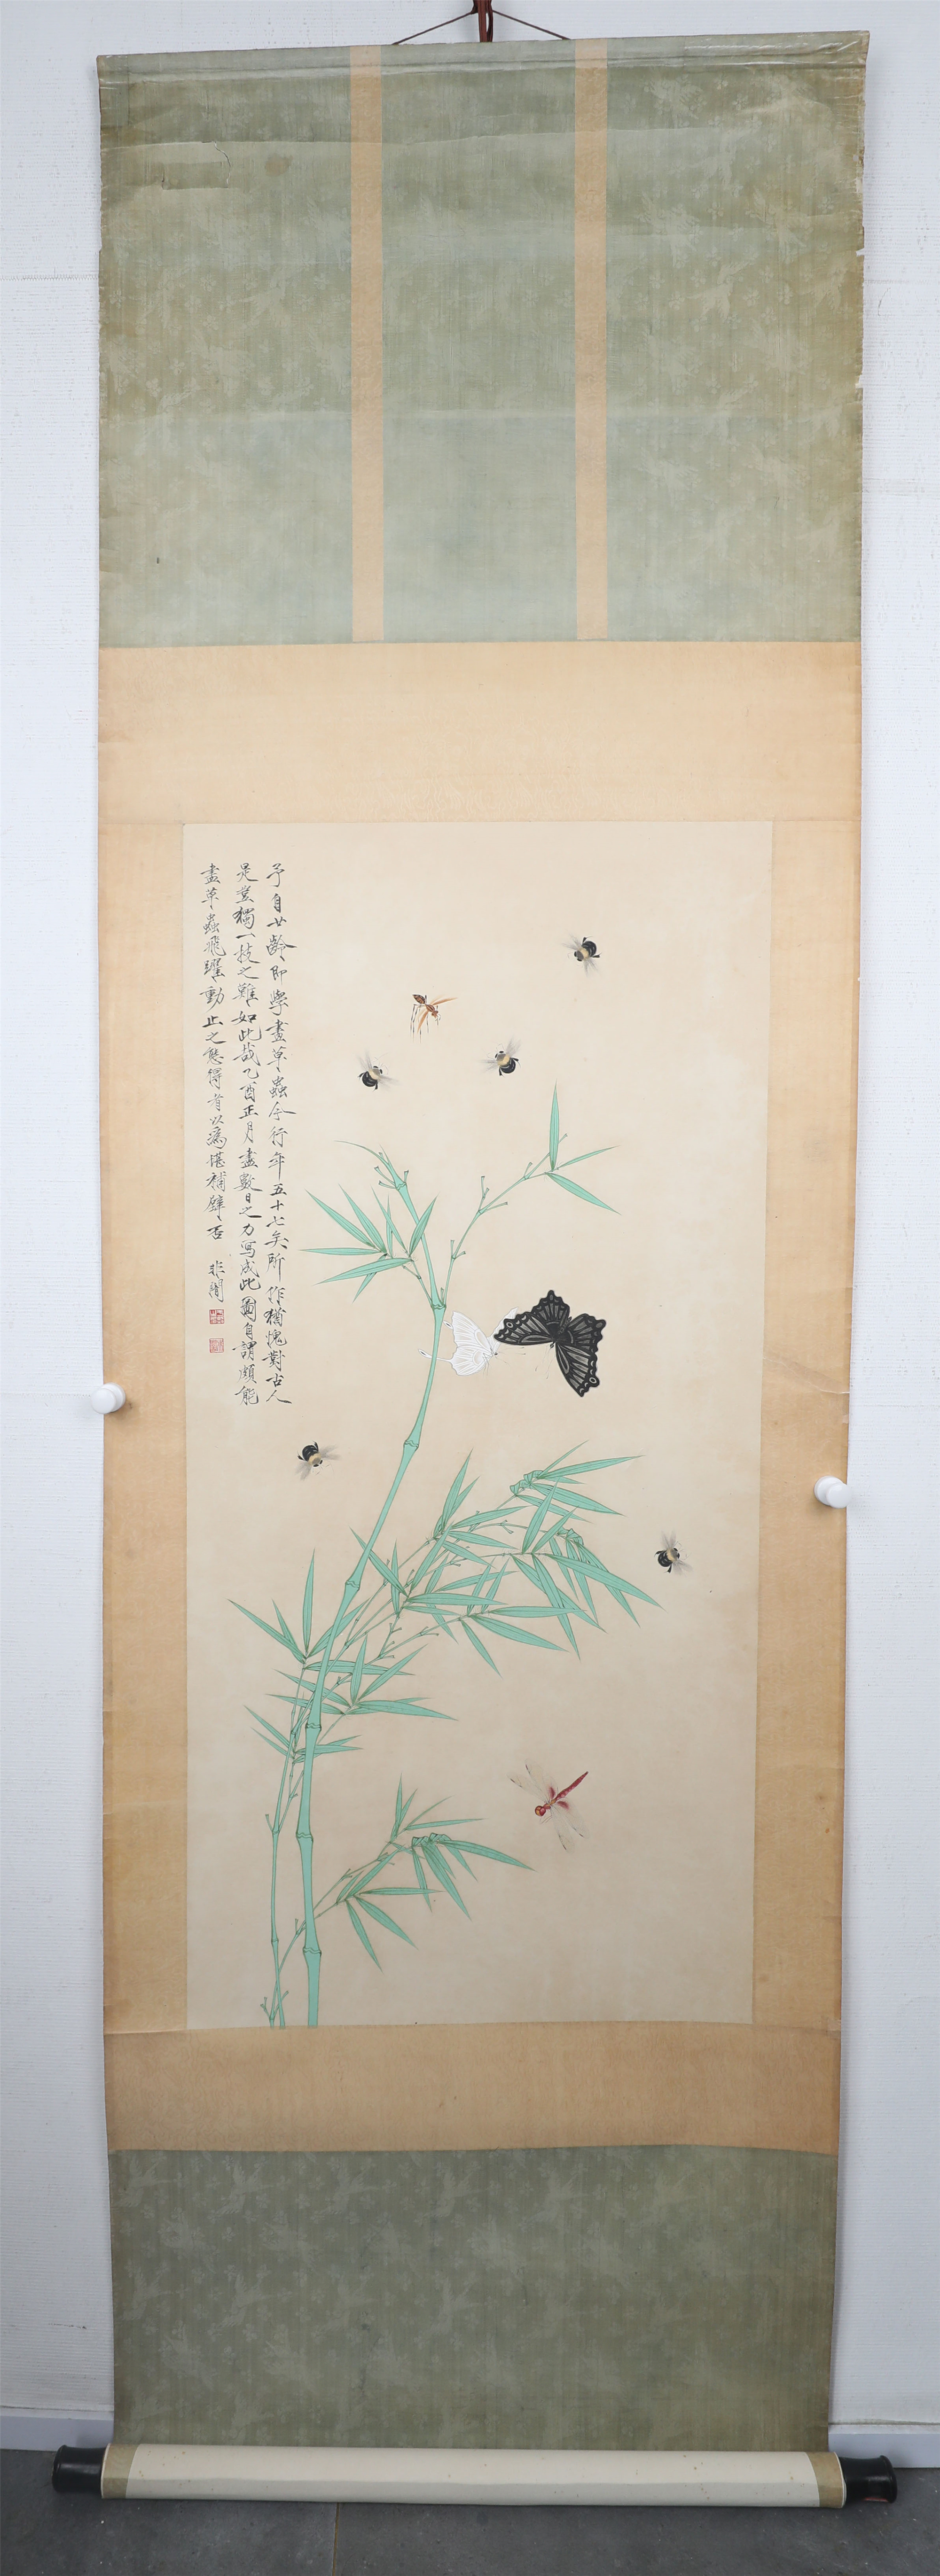 予自廿齡即學畫草蟲今行年五十七矣所作猶愧對古人
是豈獨一技之難如此哉乙酉正月盡數日之力寫成此圖自謂頗能
盡草蟲飛躍動止之態得者以為堪補壁否　非闇